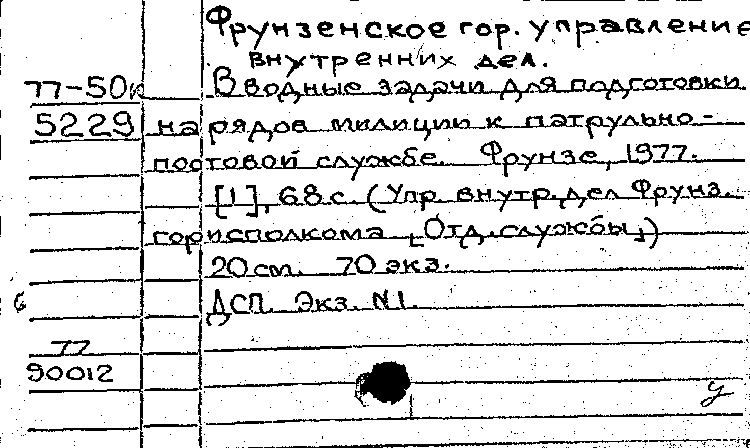 Фрунзенское гор. управление
внутренних дел.
77-50к Вводные задачи для подготовки
5229 нарядов милиции к патрульно-
постовой службе. Фрунзе, 1977.
[1], 68 с. (Упр. внутр. дел Фрунз.
горисполкома. Отд. службы)
20 см. 70 экз.
6 ДСП. Экз. N1.
77
90012
У